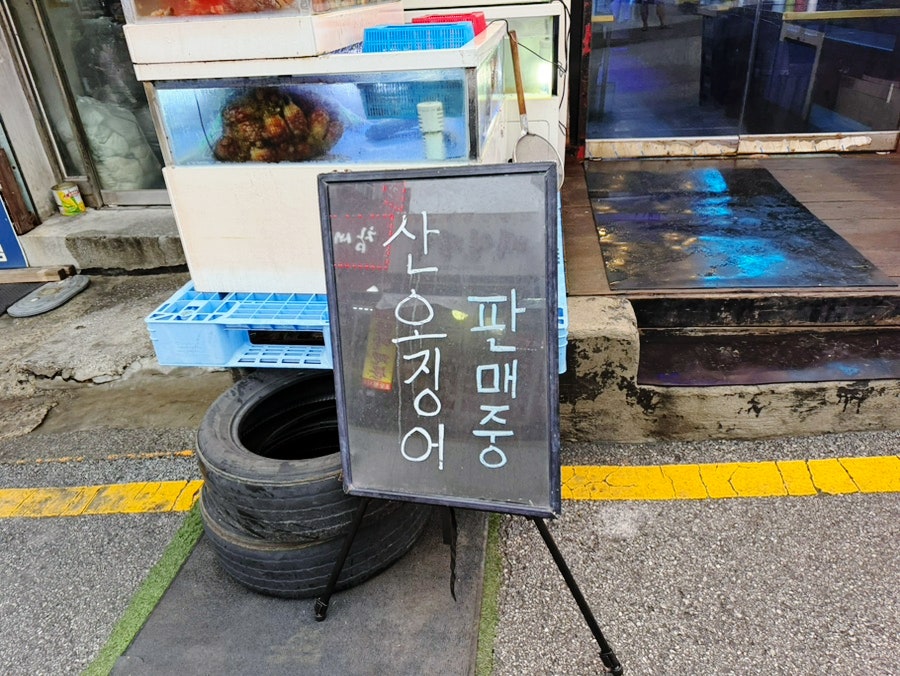 산오징어
판매중